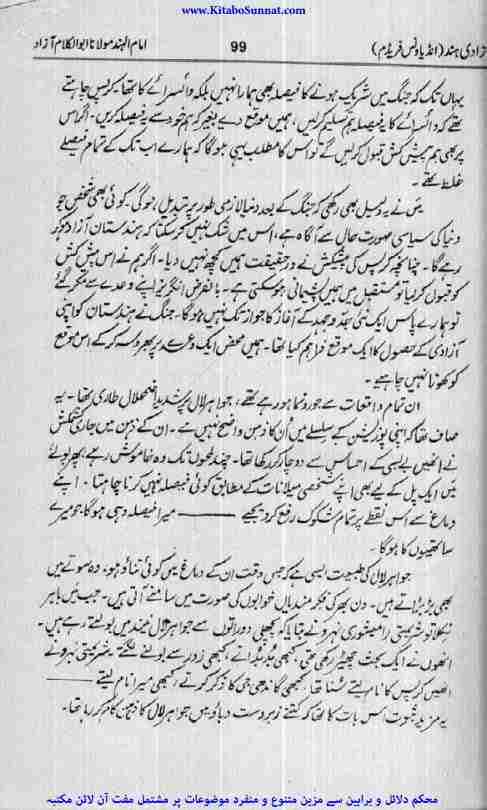 www.KitaboSunnat.com
آزادی ہند (انڈیا ونس فریڈم) 99 امام الہند مولانا ابو الکلام آزاد
یہاں تک کہ جنگ میں شریک ہونے کا فیصلہ بھی ہمارا نہیں بلکہ وائسرائے کا تھا۔ کرپس چاہتے
تھے کہ وائسرائے کا یہ فیصلہ ہم تسلیم کر لیں، ہمیں موقع دیے بغیر کہ ہم خود سے یہ فیصلہ کریں۔ اگر اس
پر بھی ہم پیش کش قبول کر لیں گے تو اس کا مطلب یہی ہوگا کہ ہمارے اب تک کے تمام فیصلے
غلط تھے۔
میں نے یہ دلیل بھی رکھی کہ جنگ کے بعد دنیا لازمی طور پر تبدیل ہوگی۔ کوئی بھی شخص جو
دنیا کی سیاسی صورت حال سے آگاہ ہے، اس میں شک نہیں کر سکتا کہ ہندستان آزاد ہوکر
رہے گا۔ چنانچہ کرپس کی پیشکش نے درحقیقت ہمیں کچھ نہیں دیا۔ اگر ہم نے اس پیش کش
کو قبول کر لیا تو مستقبل میں ہمیں پشیمانی ہو سکتی ہے۔ بالفرض انگریز اپنے وعدے سے مکر گئے
تو ہمارے پاس ایک نئی جدوجہد کے آغاز کا جواز تک نہیں ہوگا۔ جنگ نے ہندستان کو اپنی
آزادی کے حصول کا ایک موقع فراہم کیا تھا۔ ہمیں محض ایک وعدے پر بھروسہ کر کے اس موقع
کو کھونا نہیں چاہیے۔
ان تمام واقعات سے جو رونما ہو رہے تھے، جواہر لال پر شدید اضمحلال طاری تھا۔ یہ
صاف تھا کہ اپنی پوزیشن کے سلسلے میں اُن کا ذہن واضح نہیں ہے۔ ان کے ذہن میں جاری کشمکش
نے انھیں بے بسی کے احساس سے دوچار کر رکھا تھا۔ چند لمحوں تک وہ خاموش رہے، پھر بولے
میں ایک پل کے لیے بھی اپنے شخصی میلانات کے مطابق کوئی فیصلہ نہیں کرنا چاہتا۔ اپنے
دماغ سے اس نقطے پر تمام شکوک رفع کر دیجیے ——— میرا فیصلہ وہی ہوگا جو میرے
ساتھیوں کا ہوگا۔
جواہر لال کی طبیعت ایسی ہے کہ جس وقت ان کے دماغ میں کوئی تناؤ ہو، وہ سوتے میں
بھی بڑبڑاتے ہیں۔ دن بھر کی فکر مندیاں خوابوں کی صورت میں سامنے آتی ہیں۔ جب میں باہر
نکلا تو شریمتی رامیشوری نہرو نے بتایا کہ پچھلی دو راتوں سے جواہر لال نیند میں بولتے رہے ہیں۔
انھوں نے ایک بحث چھیڑ رکھی تھی، کبھی بُدبُداتے، کبھی زور سے بولنے لگتے۔ شریمتی نہرو نے
انھیں کرپس کا نام لیتے سُنا تھا، کبھی گاندھی جی کا ذکر کرتے، کبھی میرا نام لیتے ———
یہ مزید ثبوت اس بات کا تھا کہ کتنے زبردست دباؤ میں جواہر لال کا ذہن کام کر رہا تھا۔
محکم دلائل و براہین سے مزین متنوع و منفرد موضوعات پر مشتمل مفت آن لائن مکتبہ